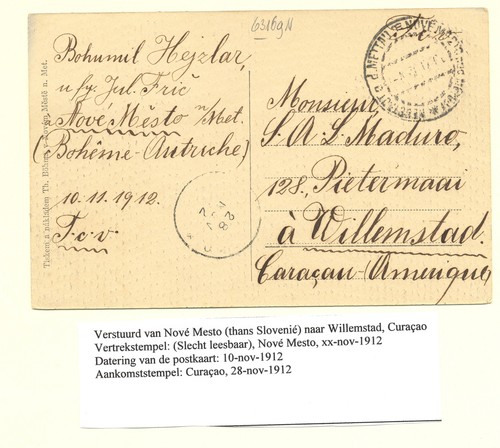 63169N
Bohumil Hejzlar,
u fy. Jul. Frič
Nové Město n/Met.
(Bohême-Autriche)
10.11.1912.
T.c.v.
Tiskem a nákladem Th. Böhma v Novém Městě n. Met.
28
Monsieur
S. A. L. Maduro,
128, Pietermaai
à Willemstad.
Caraçau-(Amerique)
Verstuurd van Nové Mesto (thans Slovenië) naar Willemstad, Curaçao
Vertrekstempel: (Slecht leesbaar), Nové Mesto, xx-nov-1912
Datering van de postkaart: 10-nov-1912
Aankomststempel: Curaçao, 28-nov-1912